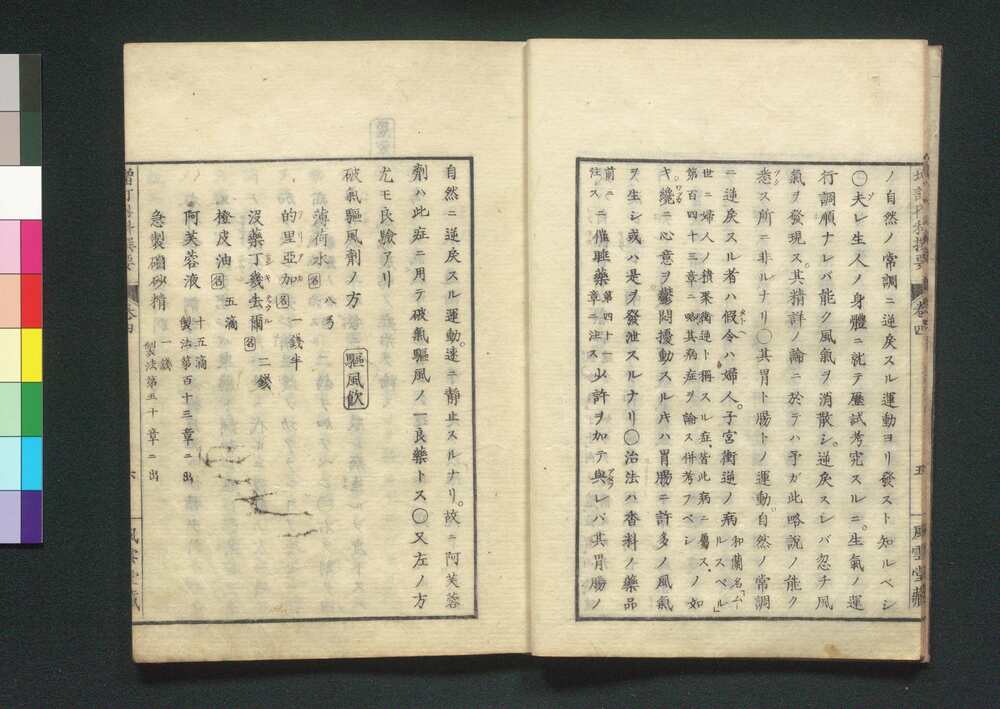 ノ自然ノ常調ニ逆戾スル運動ヨリ發スト知ルベシ
○夫レ生人ノ身體ニ就テ歷試考究スルニ。生氣ノ運
行調順ナレバ能ク風氣ヲ消散シ。逆戾スレバ忽チ風
氣ヲ發現ス。其精詳ノ論ニ於テハ予ガ此略說ノ能ク
悉ス所ニ非ルナリ○其胃ト腸トノ運動自然ノ常調
ニ逆戾スル者ハ假令ハ婦人。子宮衝逆ノ病
和蘭名「ムー
ルスペル」
世ニ婦人ノ積聚衝逆ト稱スル症、皆此病ニ屬ス、
第百四十三章ニ略其病症ヲ論ス併考フベシ
ノ如
キ纔ニ心意ヲ鬱悶擾動スルキハ胃腸ニ許多ノ風氣
ヲ生シ或ハ是ヲ發泄スルナリ○治法ハ香料ノ藥品
前ニ
注ス
ニ催睡藥
第四十一
章ニ注ス
少許ヲ加テ與レバ其胃腸ノ
卷四
五
風雲堂藏
自然ニ逆戾スル運動。速ニ靜止スルナリ。故ニ阿芙蓉
劑ハ此症ニ用テ破氣驅風ノ一良藥トス○又左ノ方
尤モ良驗アリ
破氣驅風劑ノ方 驅風飲
薄荷水 名 八弓
的里亞加 名 一錢半
沒藥丁幾去爾 名 二錢
橙皮油 名 五滴
阿芙蓉液 十五滴
製法第百十三章ニ出
急製磠砂精 一錢
製法第五十章ニ出
卷四
六